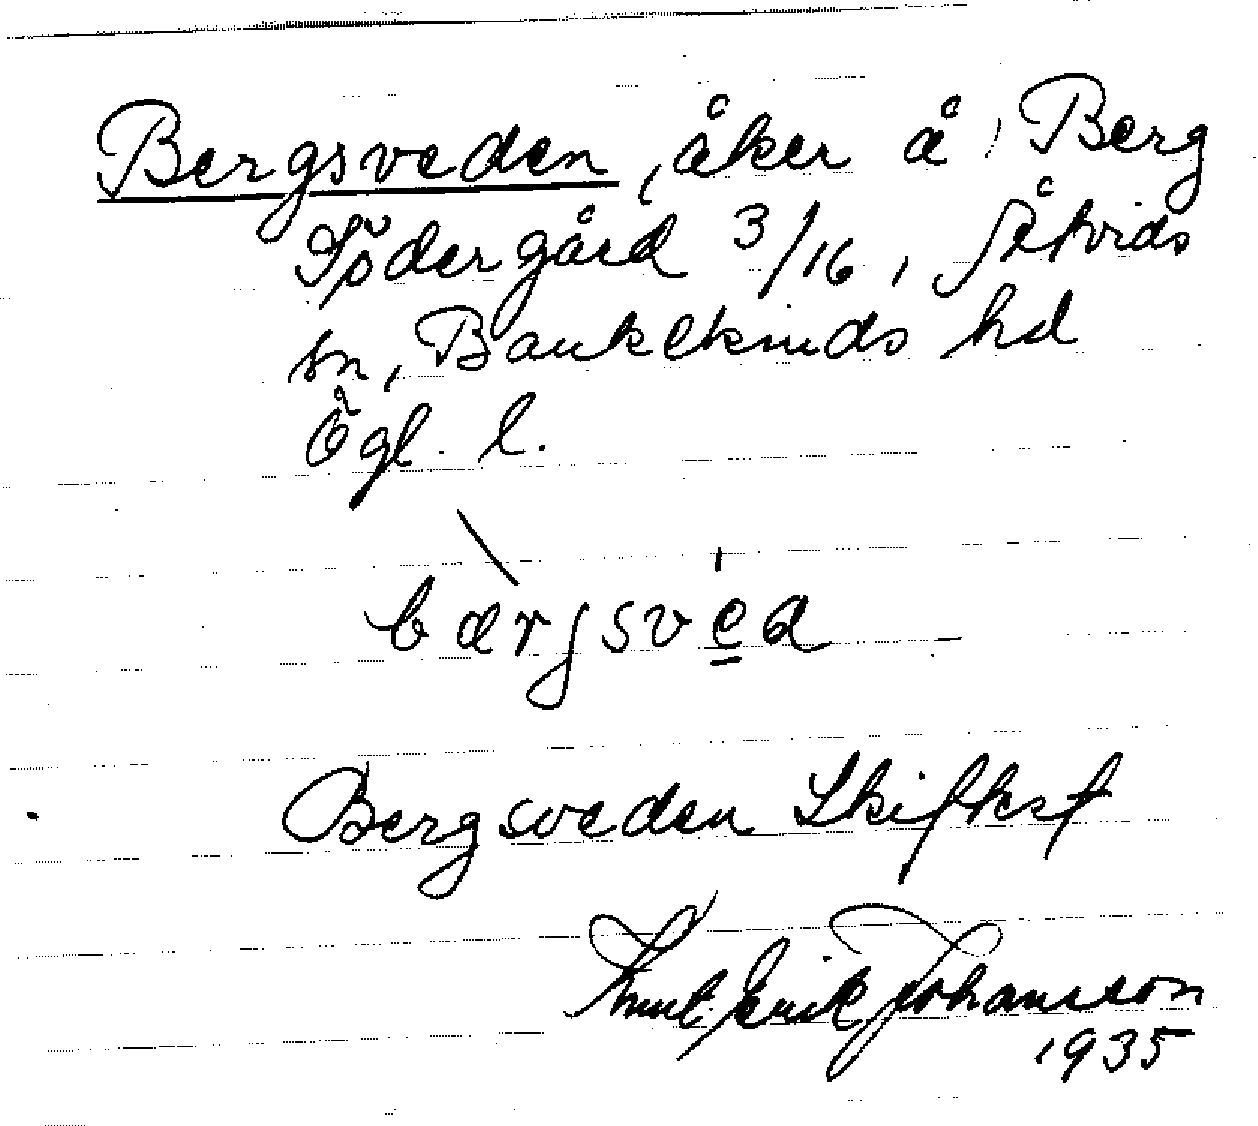 Bergsveden, åker å Berg
Södergård 3/16, Åtvids
sn, Bankekinds hd
Ögl. l.
bærjsveda
Bergsveden Skifteskt
Knut Erik Johansson
1935